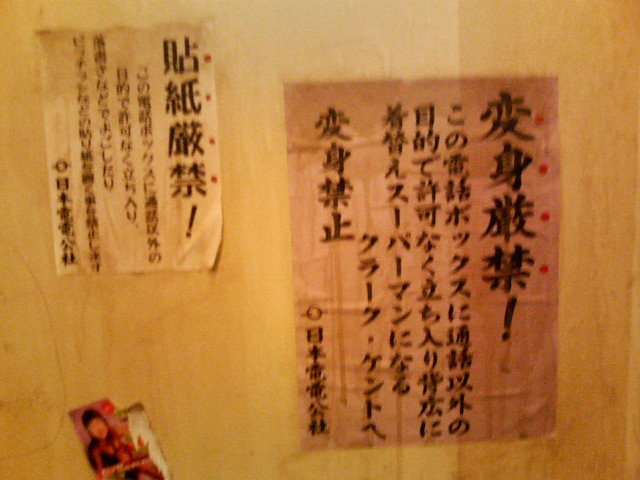 変身厳禁!
この電話ボックスに通話以外の
目的で許可なく立ち入り背広に
着替えスーパーマンになる
クラーク・ケントへ
変身禁止
日本電電公社
貼紙厳禁!
この電話ボックスに通話以外の
目的で許可なく立ち入り、
落書きなどでよごしたり
などの貼り紙を固く禁止します
日本電電公社